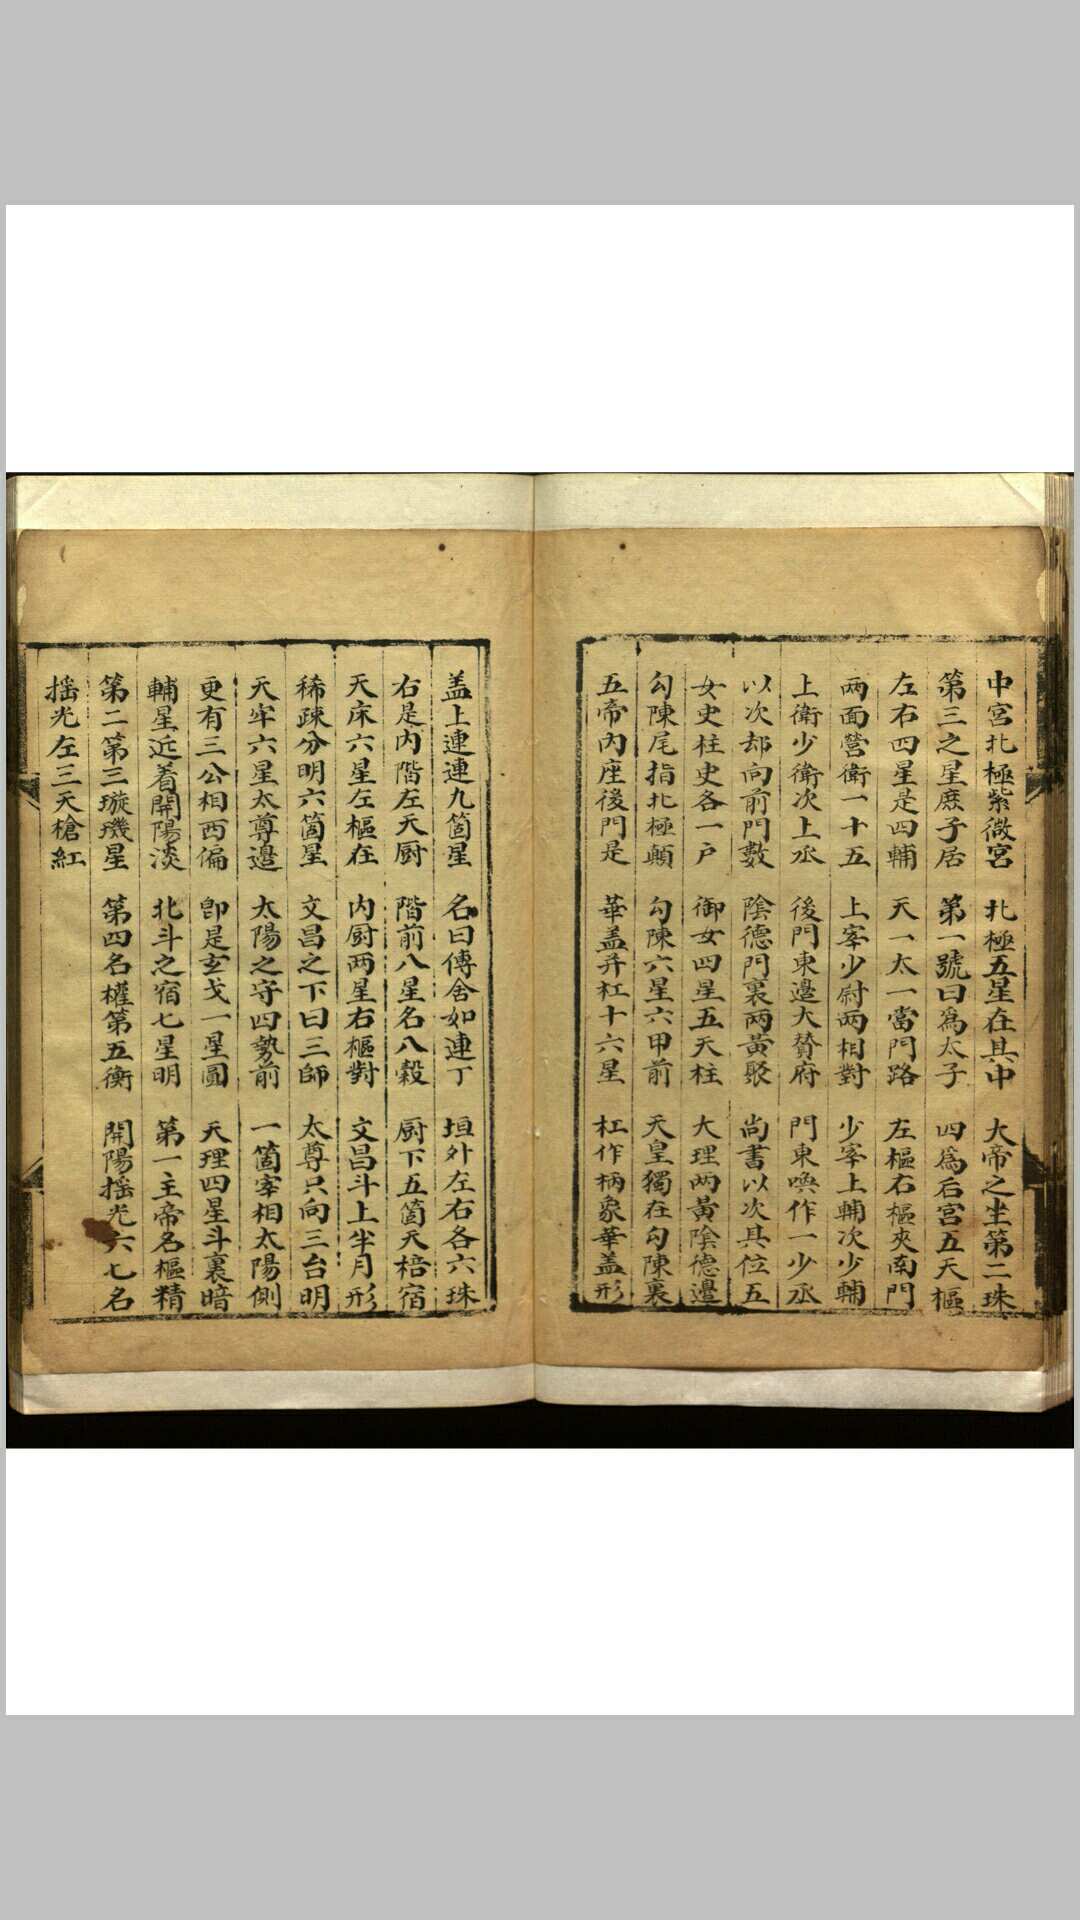 中宮北極紫微宮 北極五星在其中 大帝之坐第二珠
第三之星庶子居 第一號曰爲太子 四爲后宮五天樞
左右四星是四輔 天一太一當門路 左樞右樞夾南門
兩面營衛一十五 上宰少尉兩相對 少宰上輔次少輔
上衛少衛次上丞 後門東邊大賛府 門東喚作一少丞
以次却向前門數 陰德門裏兩黃聚 尚書以次其位五
女史柱史各一户 御女四星五天柱 大理兩黃陰德邊
勾陳尾指北極顛 勾陳六星六甲前 天皇獨在勾陳裏
五帝內座後門是 華盖并杠十六星 杠作柄象華盖形
盖上連連九箇星 名曰傳舍如連丁 垣外左右各六珠
右是內階左天厨 階前八星名八穀 厨下五箇天棓宿
天床六星左樞在 內厨兩星右樞對 文昌斗上半月形
稀疎分明六箇星 文昌之下曰三師 太尊只向三台明
天牢六星太尊邊 太陽之守四勢前 一箇宰相太陽側
更有三公相西偏 卽是玄戈一星圓 天理四星斗裏暗
輔星近着開陽淡 北斗之宿七星明 第一主帝名樞精
第二第三璇璣星 第四名權第五衡 開陽揺光六七名
揺光左三天槍紅